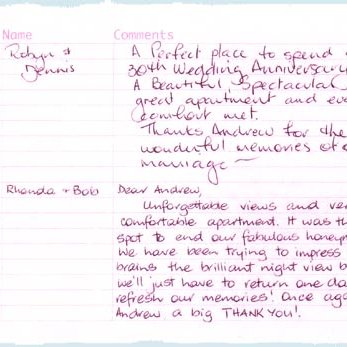 Name Comments
Robyn & Dennis
A Perfect place to spend
30th Wedding Anniversary
A Beautiful, Spectacular
great apartment and
comfort met.
Thanks Andrew for the
wonderful memories of
marriage
Rhonda + Bob
Dear Andrew,
Unforgettable views and
comfortable apartment. It was the
spot to end our fabulous
We have been trying to impress
brains the brilliant night view
we'll just have to return one
refresh our memories! Once
Andrew a big THANKYOU!